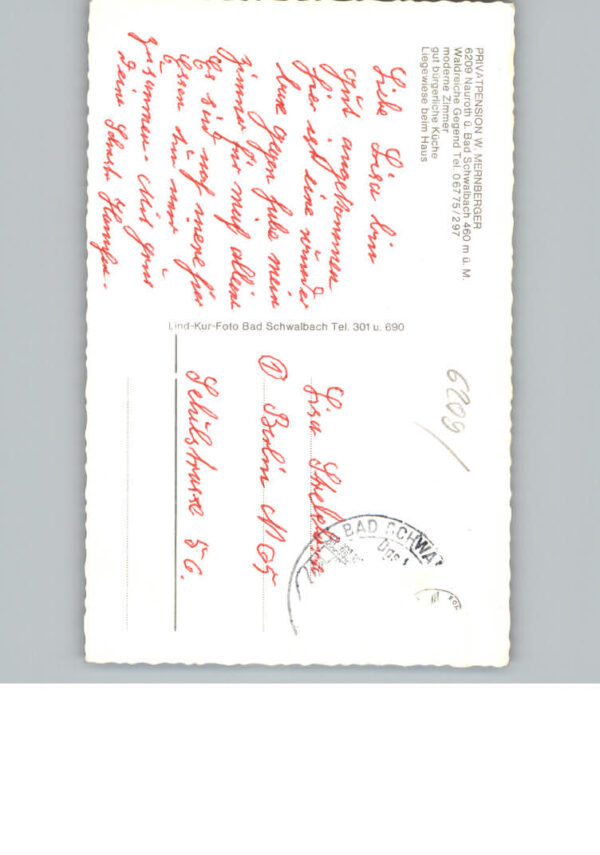 PRIVATPENSION W. MERNBERGER
6209 Nauroth ü. Bad Schwalbach 460 m ü. M.
Waldreiche Gegend Tel. 06775/297
moderne Zimmer
gut bürgerliche Küche
Liegewiese beim Haus
Liebe Lisa bin
gut angekommen
hier ist eine wunder
gegen habe mein
zimmer für mich allein
Es sind noch
Essen nur
zusammen. Mit
Deine
Lind-Kur-Foto Bad Schwalbach Tel. 301 u. 690
6209/
Lisa
1 Berlin N 65
Schulstrasse 56.
BAD SCHWA